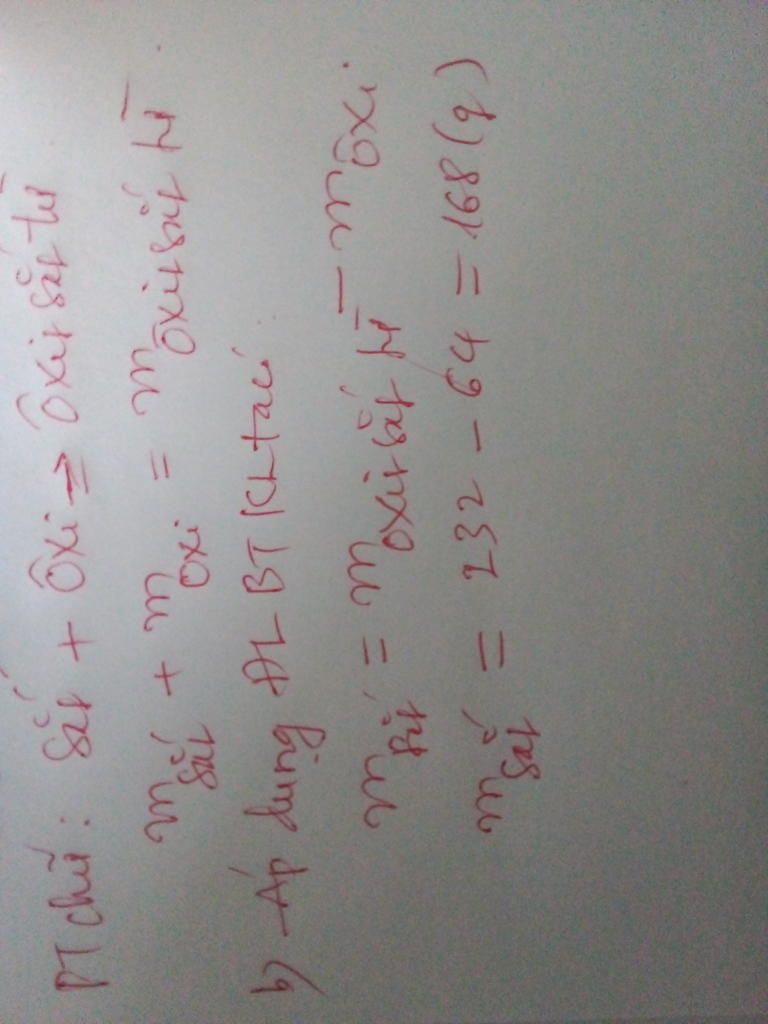 PT chữ: Sắt + Ôxi → Ôxit sắt từ
m sắt + m ôxi = m ôxit sắt từ
b) Áp dụng ĐL BT KL ta có
m sắt = m oxit sắt từ - m ôxi
m sắt = 232 - 64 = 168 (g)